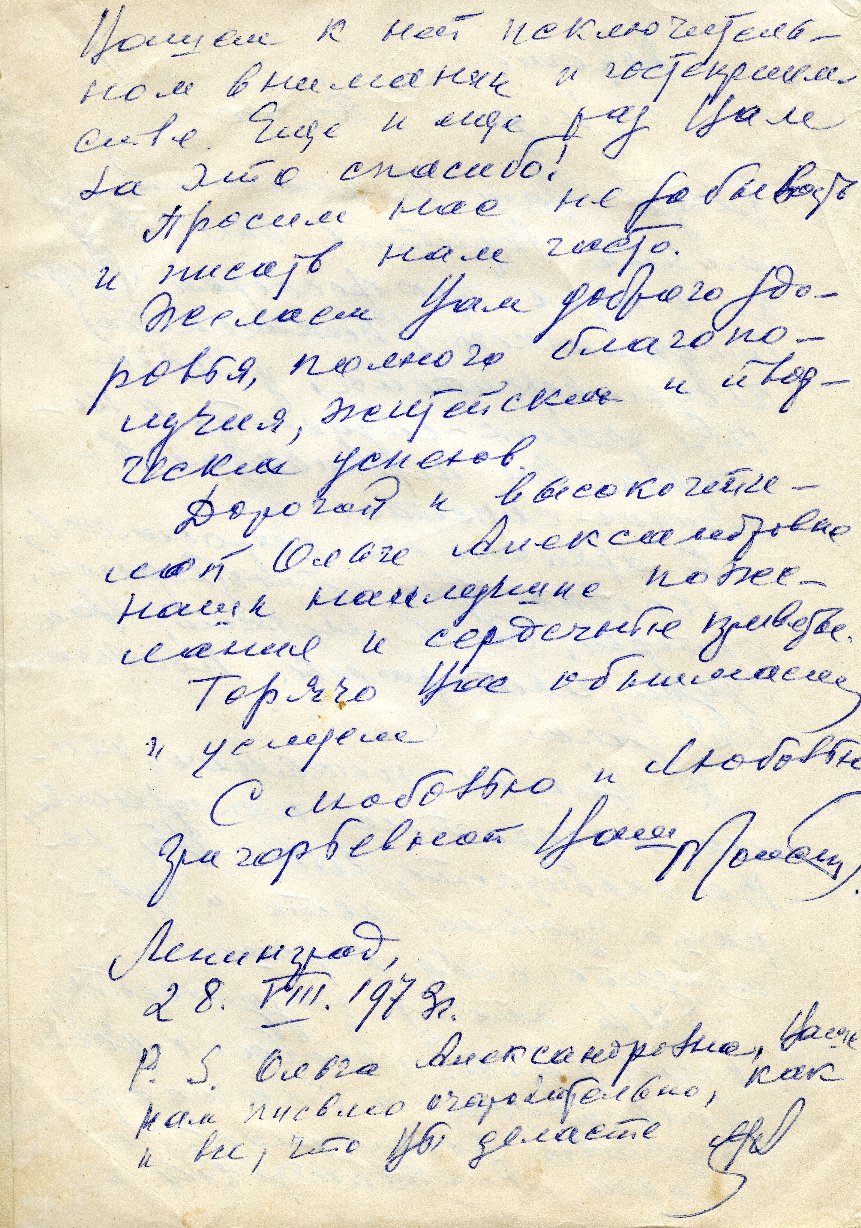 Вашем к ней исключитель-
ном внимании и гостеприим-
стве. Еще и еще раз Вам
за это спасибо!
Просим нас не забывать
и писать нам часто.
Желаем Вам доброго здо-
ровья, полного благопо-
лучия, житейских и твор-
ческих успехов.
Дорогой и высокочти-
мой Ольге Александровне
наши наилучшие поже-
лания и сердечные приветы.
Горячо Вас обнимаем
и целуем
С любовью и Любовью
Григорьевной Ваш
Ленинград,
28. VIII. 197 г.
P. S. Ольга Александровна, Ваше
нам письмо очаровательно, как
и все, что Вы делаете